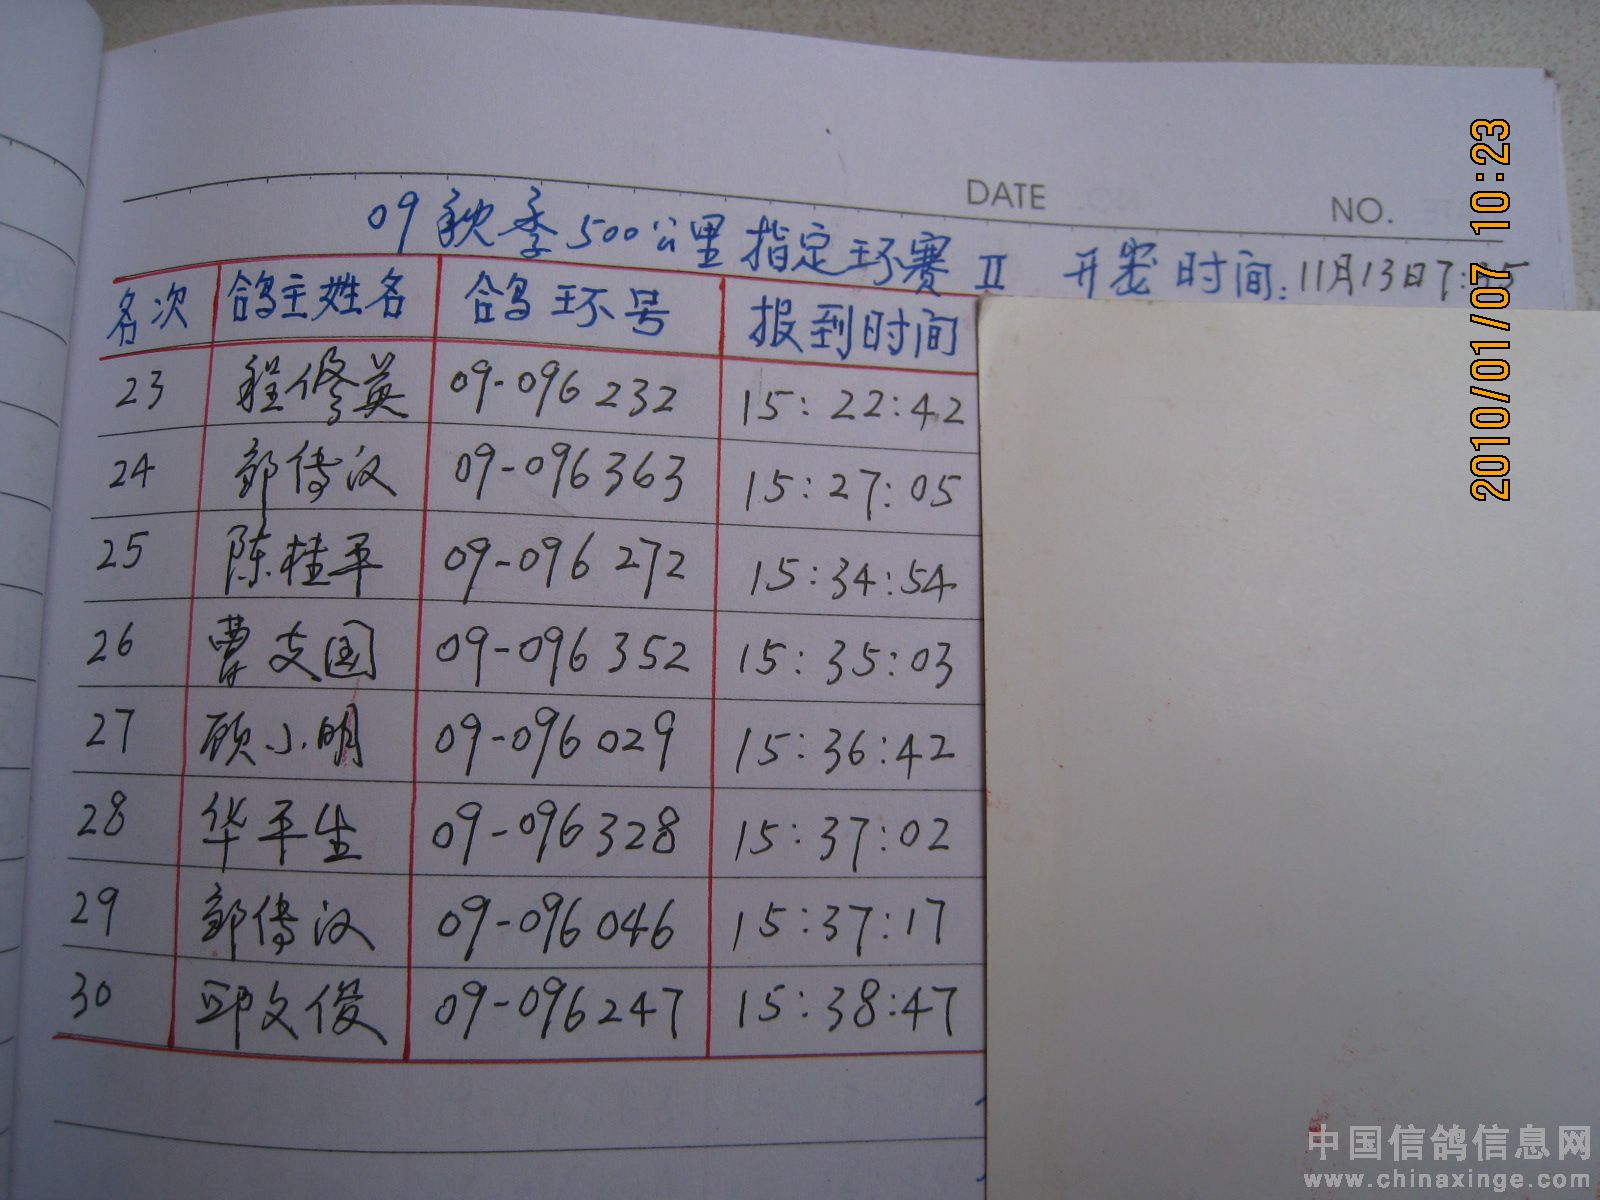 DATE NO.
09秋季500公里指定环赛 II 开密时间:11月13日7:
名次 鸽主姓名 鸽环号 报到时间
23 程修英 09-096232 15:22:42
24 郭传汉 09-096363 15:27:05
25 陈桂平 09-096272 15:34:54
26 曹支国 09-096352 15:35:03
27 顾小明 09-096029 15:36:42
28 华平生 09-096328 15:37:02
29 郭传汉 09-096046 15:37:17
30 邱文俊 09-096247 15:38:47
2010/01/07 10:23
中国信鸽信息网
www.chinaxinge.com